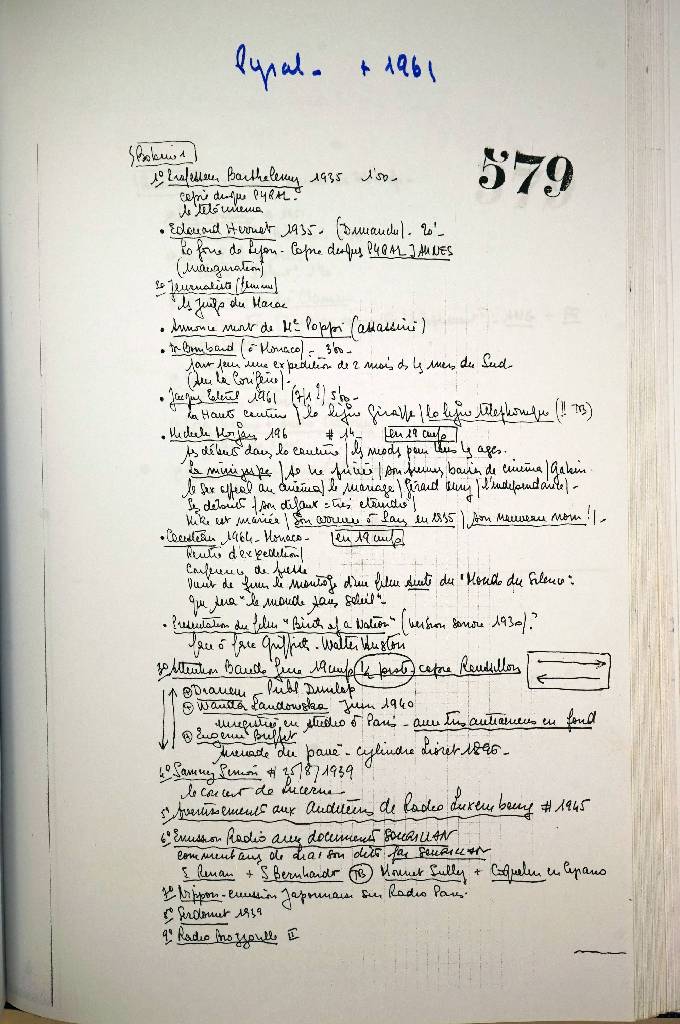 Pyral - + 1961
579
Bobine 1
1° Professeur Barthelemy 1935 1'50 -
copie disque PYRAL -
le télécinéma
• Edouard Herriot 1935 - (Dimanche) - 20' -
La foire de Lyon - Copie disques PYRAL JAUNES
(Inauguration)
2° Journaliste (femme)
les Juifs du Maroc
• Annonce mort de Me Poppi (assassiné)
• Dr Bombard (à Monaco) - 3'00 -
part pour une expedition de 2 mois ds les mers du Sud -
(sur la Corifène) -
• Jacques 1961 (7/1?) 5'00 -
La Haute couture / la ligne Giraffe / la ligne telephonique (!! TB)
• Michele Morgan 196 # 14 - en 19 cm/s
Ses débuts dans la couture / les mods pour tous les ages.
La minijupe / sa vie privée / son premier baiser de cinéma / Gabin
le Sex appeal au cinéma / le mariage / Gérard Oury / l'independance / -
Ses defauts / son défaut = très étendue /
Mike est mariée / Son arrivée à Paris en 1935 / son nouveau nom !! -
• Cousteau 1964 - Monaco - en 19 cm/s
Rentre d'expedition /
Conference de presse
Vient de finir le montage d'un film suite du "Monde du Silence":
qui sera "le monde sans soleil" -
• Presentation du film "Birth of a Nation" (version sonore 1930) ?
face à face Griffith - Walter Huston
3° Attention Bande fine 19 cm/s 1/2 piste copie Roussillon
Dranem Publ Dunlop
Wanda Landowska Juin 1940
enregistrée en studio à Paris - avec tirs antiaeriens en fond
Eugenie Buffet
Serenade du pavé - cylindre Lioret 1896 -
4° Sammy Simon # 25/8/1939
le concert de Lucerne -
5° Avertissement aux auditeurs de Radio Luxembourg # 1945
6° Emission Radio avec documents SOURILLAN
commentaires de liaison dits par SOURILLAN
E Renan + S Bernhardt (TB) Mounet Sully + Coquelin en Cyrano
7° Nippon - emission Japonaise sur Radio Paris -
8° 1939
9° Radio Brazzaville II